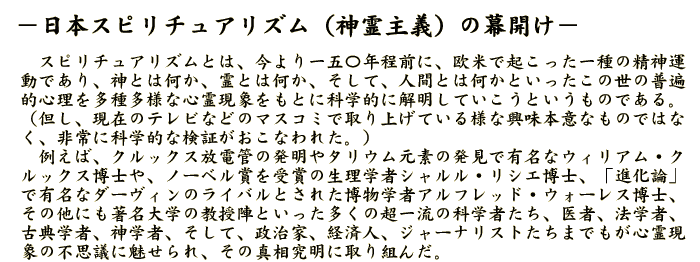 －日本スピリチュアリズム（神霊主義）の幕開け－
スピリチュアリズムとは、今より一五〇年程前に、欧米で起こった一種の精神運
動であり、神とは何か、霊とは何か、そして、人間とは何かといったこの世の普遍
的心理を多種多様な心霊現象をもとに科学的に解明していこうというものである。
（但し、現在のテレビなどのマスコミで取り上げている様な興味本意なものではな
く、非常に科学的な検証がおこなわれた。）
例えば、クルックス放電管の発明やタリウム元素の発見で有名なウィリアム・ク
ルックス博士や、ノーベル賞を受賞の生理学者シャルル・リシエ博士、「進化論」
で有名なダーヴィンのライバルとされた博物学者アルフレッド・ウォーレス博士、
その他にも著名大学の教授陣といった多くの超一流の科学者たち、医者、法学者、
古典学者、神学者、そして、政治家、経済人、ジャーナリストたちまでもが心霊現
象の不思議に魅せられ、その真相究明に取り組んだ。